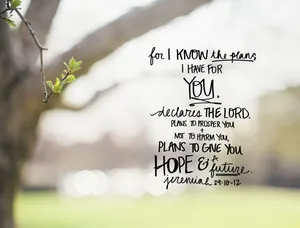 for I KNOW the plans
I HAVE FOR
YOU.
declares THE LORD.
PLANS TO PROSPER YOU
+
NOT TO HARM YOU,
PLANS TO GIVE YOU
HOPE & a future.
jeremiah 29:10-12